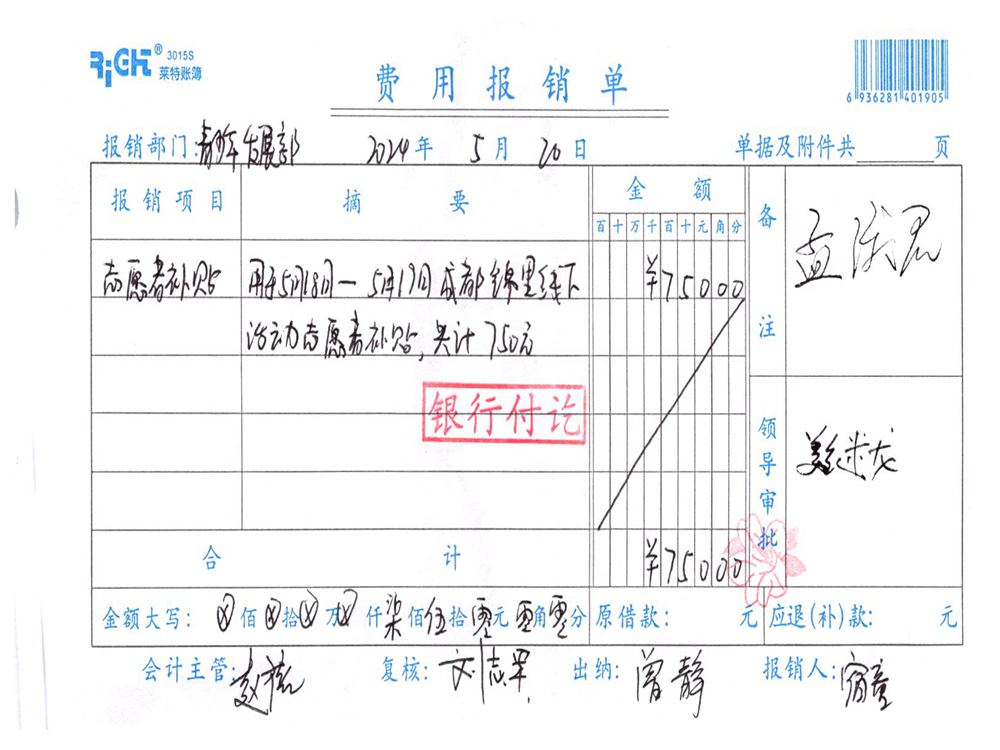 RiGHT® 3015S
莱特账簿
费用报销单
6 936281 401905
报销部门:青少年发展部 2024年 5月 20日 单据及附件共 页
报销项目 摘要 金额 备注
百十万千百十元角分
志愿者补贴 用于5月18日一5月19日成都锦里线下 ¥75000
活动志愿者补贴,共计750元
银行付讫
领导审批
合计 ¥75000
金额大写: ⊗佰⊗拾⊗万⊗仟柒佰伍拾零元零角零分 原借款: 元 应退(补)款: 元
会计主管: 复核: 出纳:曾静 报销人: